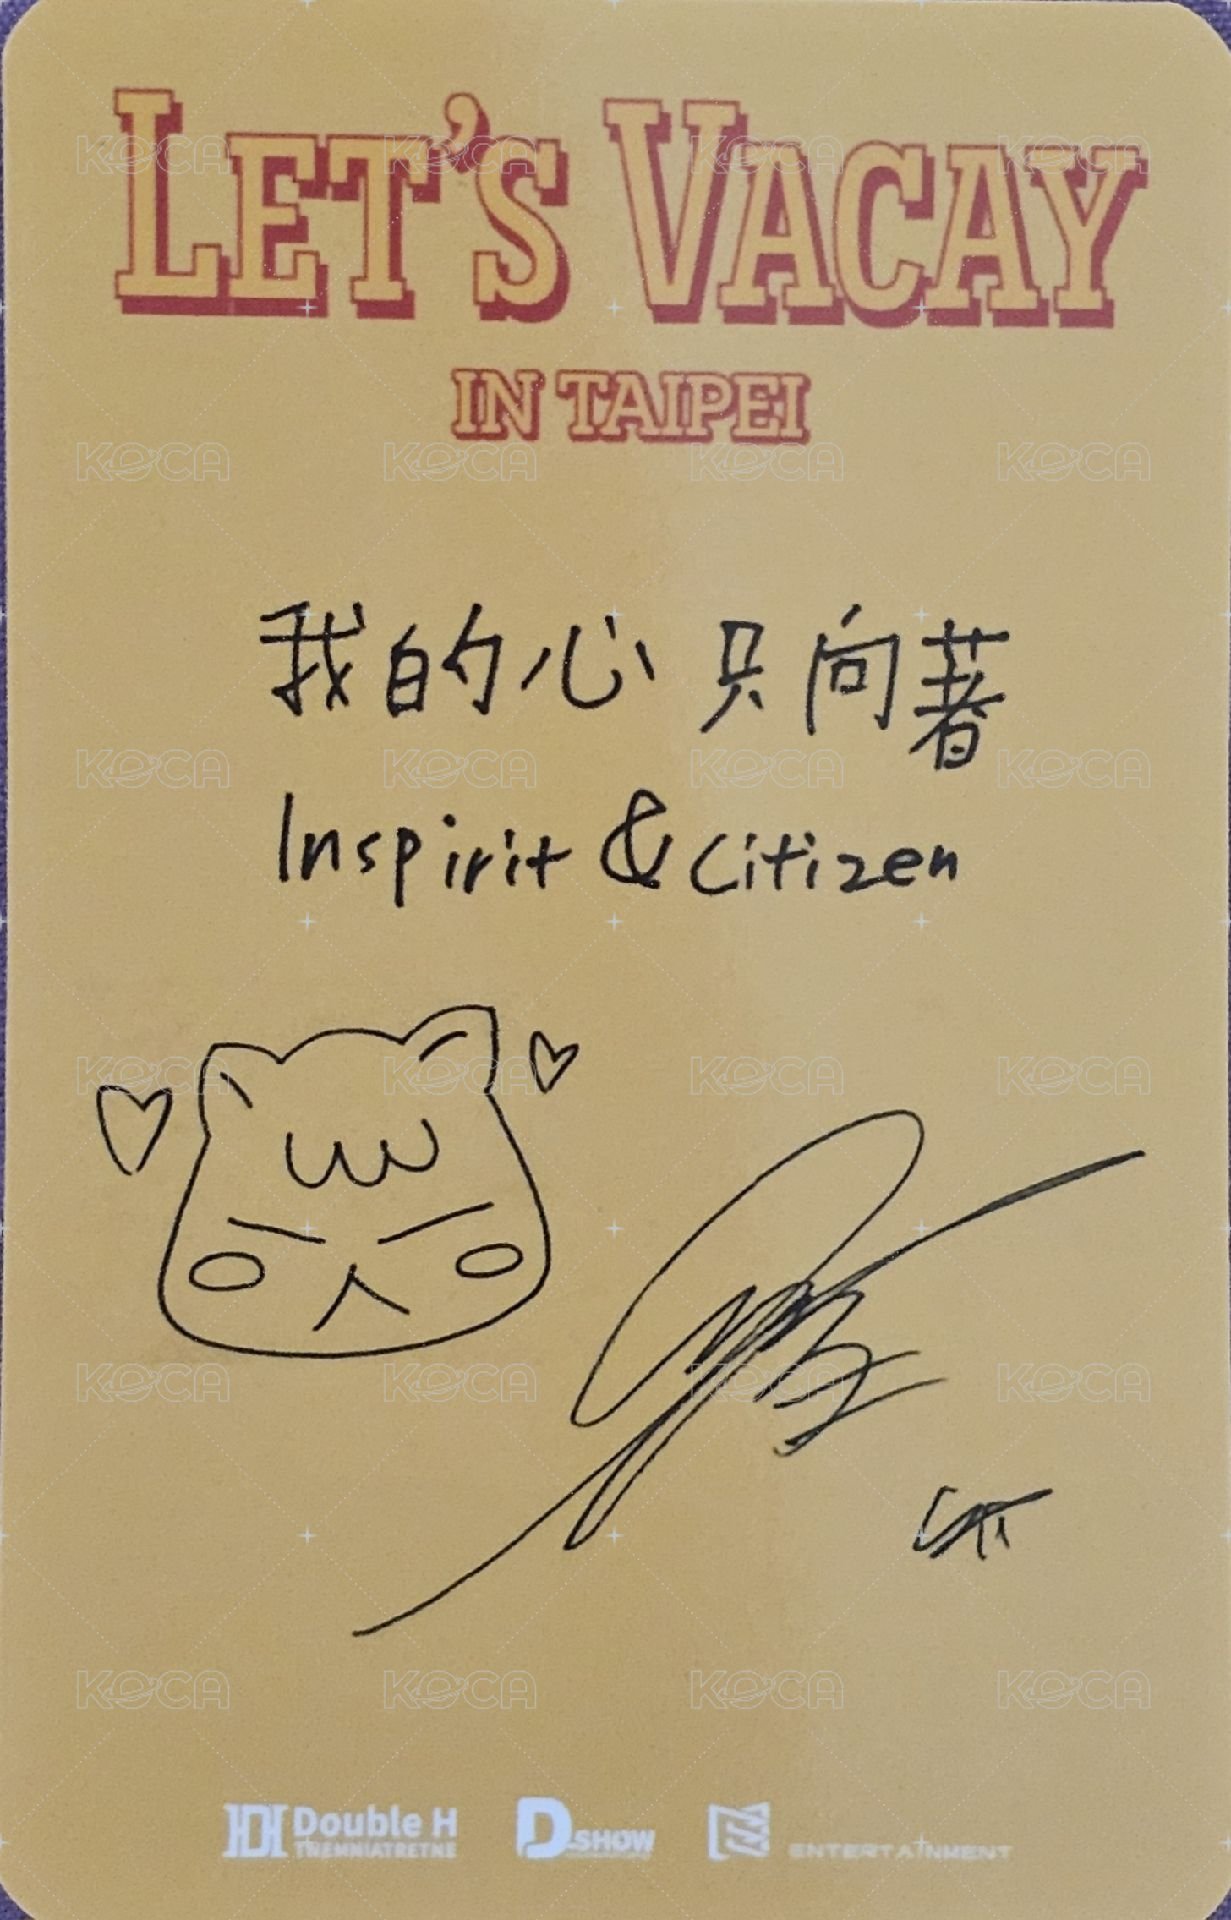 LET'S VACAY
IN TAIPEI
我的心只向著
Inspirit & Citizen
Double H
TREMNIATRETNE
D.SHOW
ENTERTAINMENT
KOCA